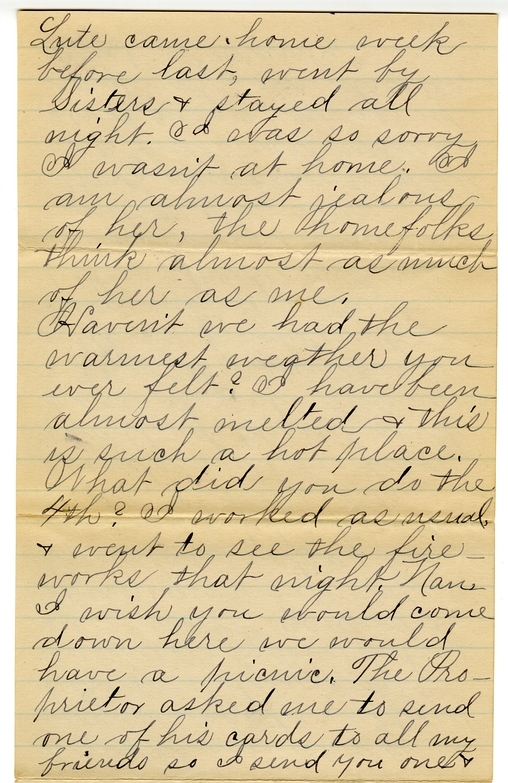 Lute came home week
before last, went by
Sisters & stayed all
night. I was so sorry
I wasn't at home. I
am almost jealous
of her, the homefolks
think almost as much
of her as me.
Haven't we had the
warmest wegther you
ever felt? I have been
almost melted & this
is such a hot place.
What did you do the
4th? I worked as usual
& went to see the fire-
works that night. Nan
I wish you would come
down here we would
have a picnic. The Pro-
prietor asked me to send
one of his cards to all my
friends so I send you one &